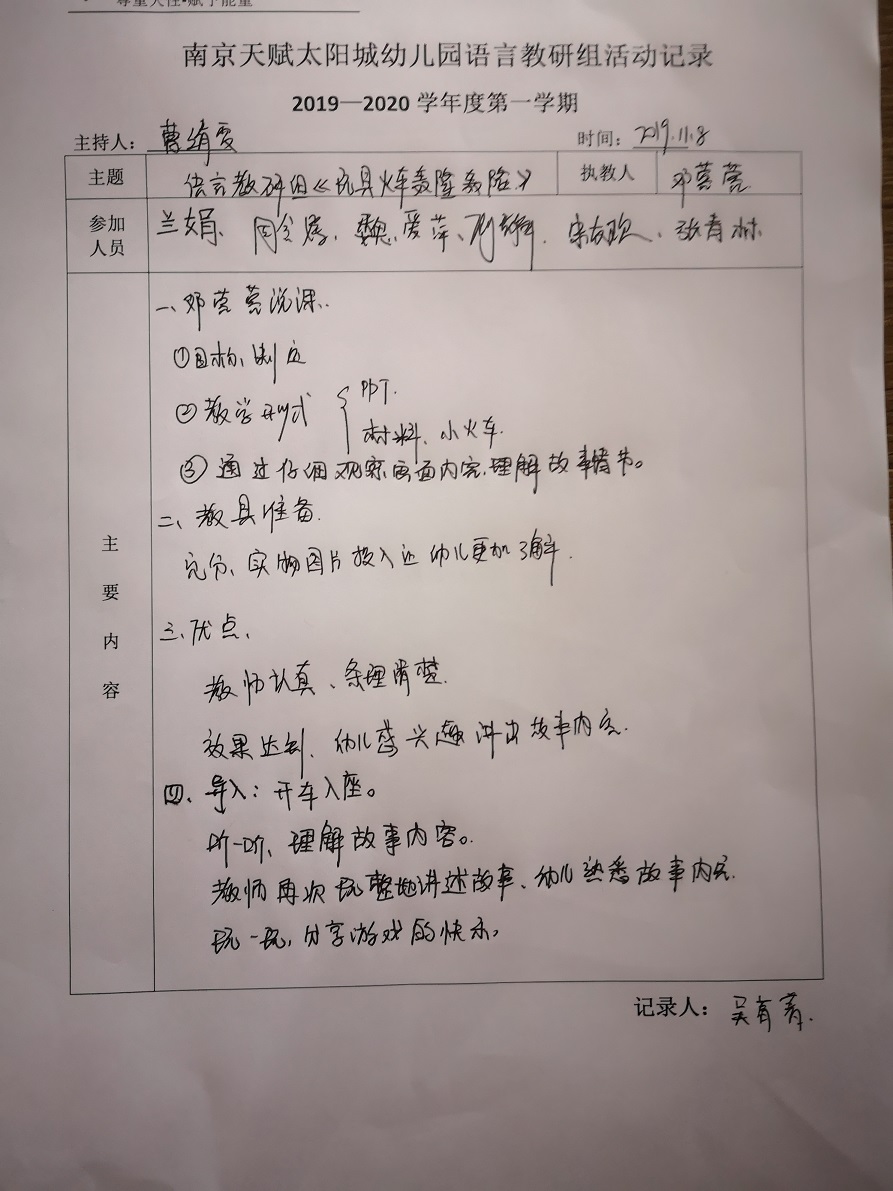 尊重天性·赋予能量
南京天赋太阳城幼儿园语言教研组活动记录
2019—2020 学年度第一学期
主持人：曹绢霞 时间：2019.11.8
主题 语言教研组《玩具火车轰隆轰隆》 执教人 邓蓉蓉
参加人员 兰娟、魏爱萍、
主要内容
一、邓蓉蓉说课.
①目标、制定
②教学形式 { PPT.
材料、小火车.
③通过仔细观察画面内容.理解故事情节。
二、教具准备.
充分、实物图片投入让幼儿更加了解.
三、优点、
教师认真、条理清楚.
效果达到、幼儿感兴趣讲出故事内容.
四、导入：开车入座。
听一听、理解故事内容。
教师再次完整地讲述故事、幼儿熟悉故事内容.
玩一玩，分享游戏的快乐，
记录人：吴有菁.